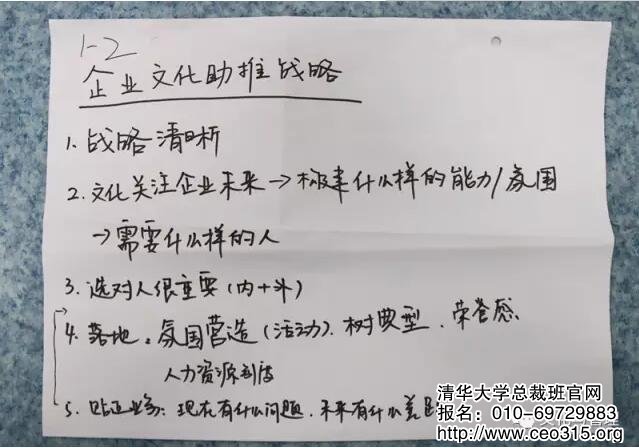 1-2
企业文化助推战略
1. 战略清晰
2. 文化关注企业未来→构建什么样的能力/氛围
→需要什么样的人
3. 选对人很重要(内+外)
4. 落地:氛围营造(活动).树典型.荣誉感
人力资源制度
5. 贴近业务:现在有什么问题.未来有什么差
清华大学总裁班官网
报名:010-69729883
www.ceo315.org